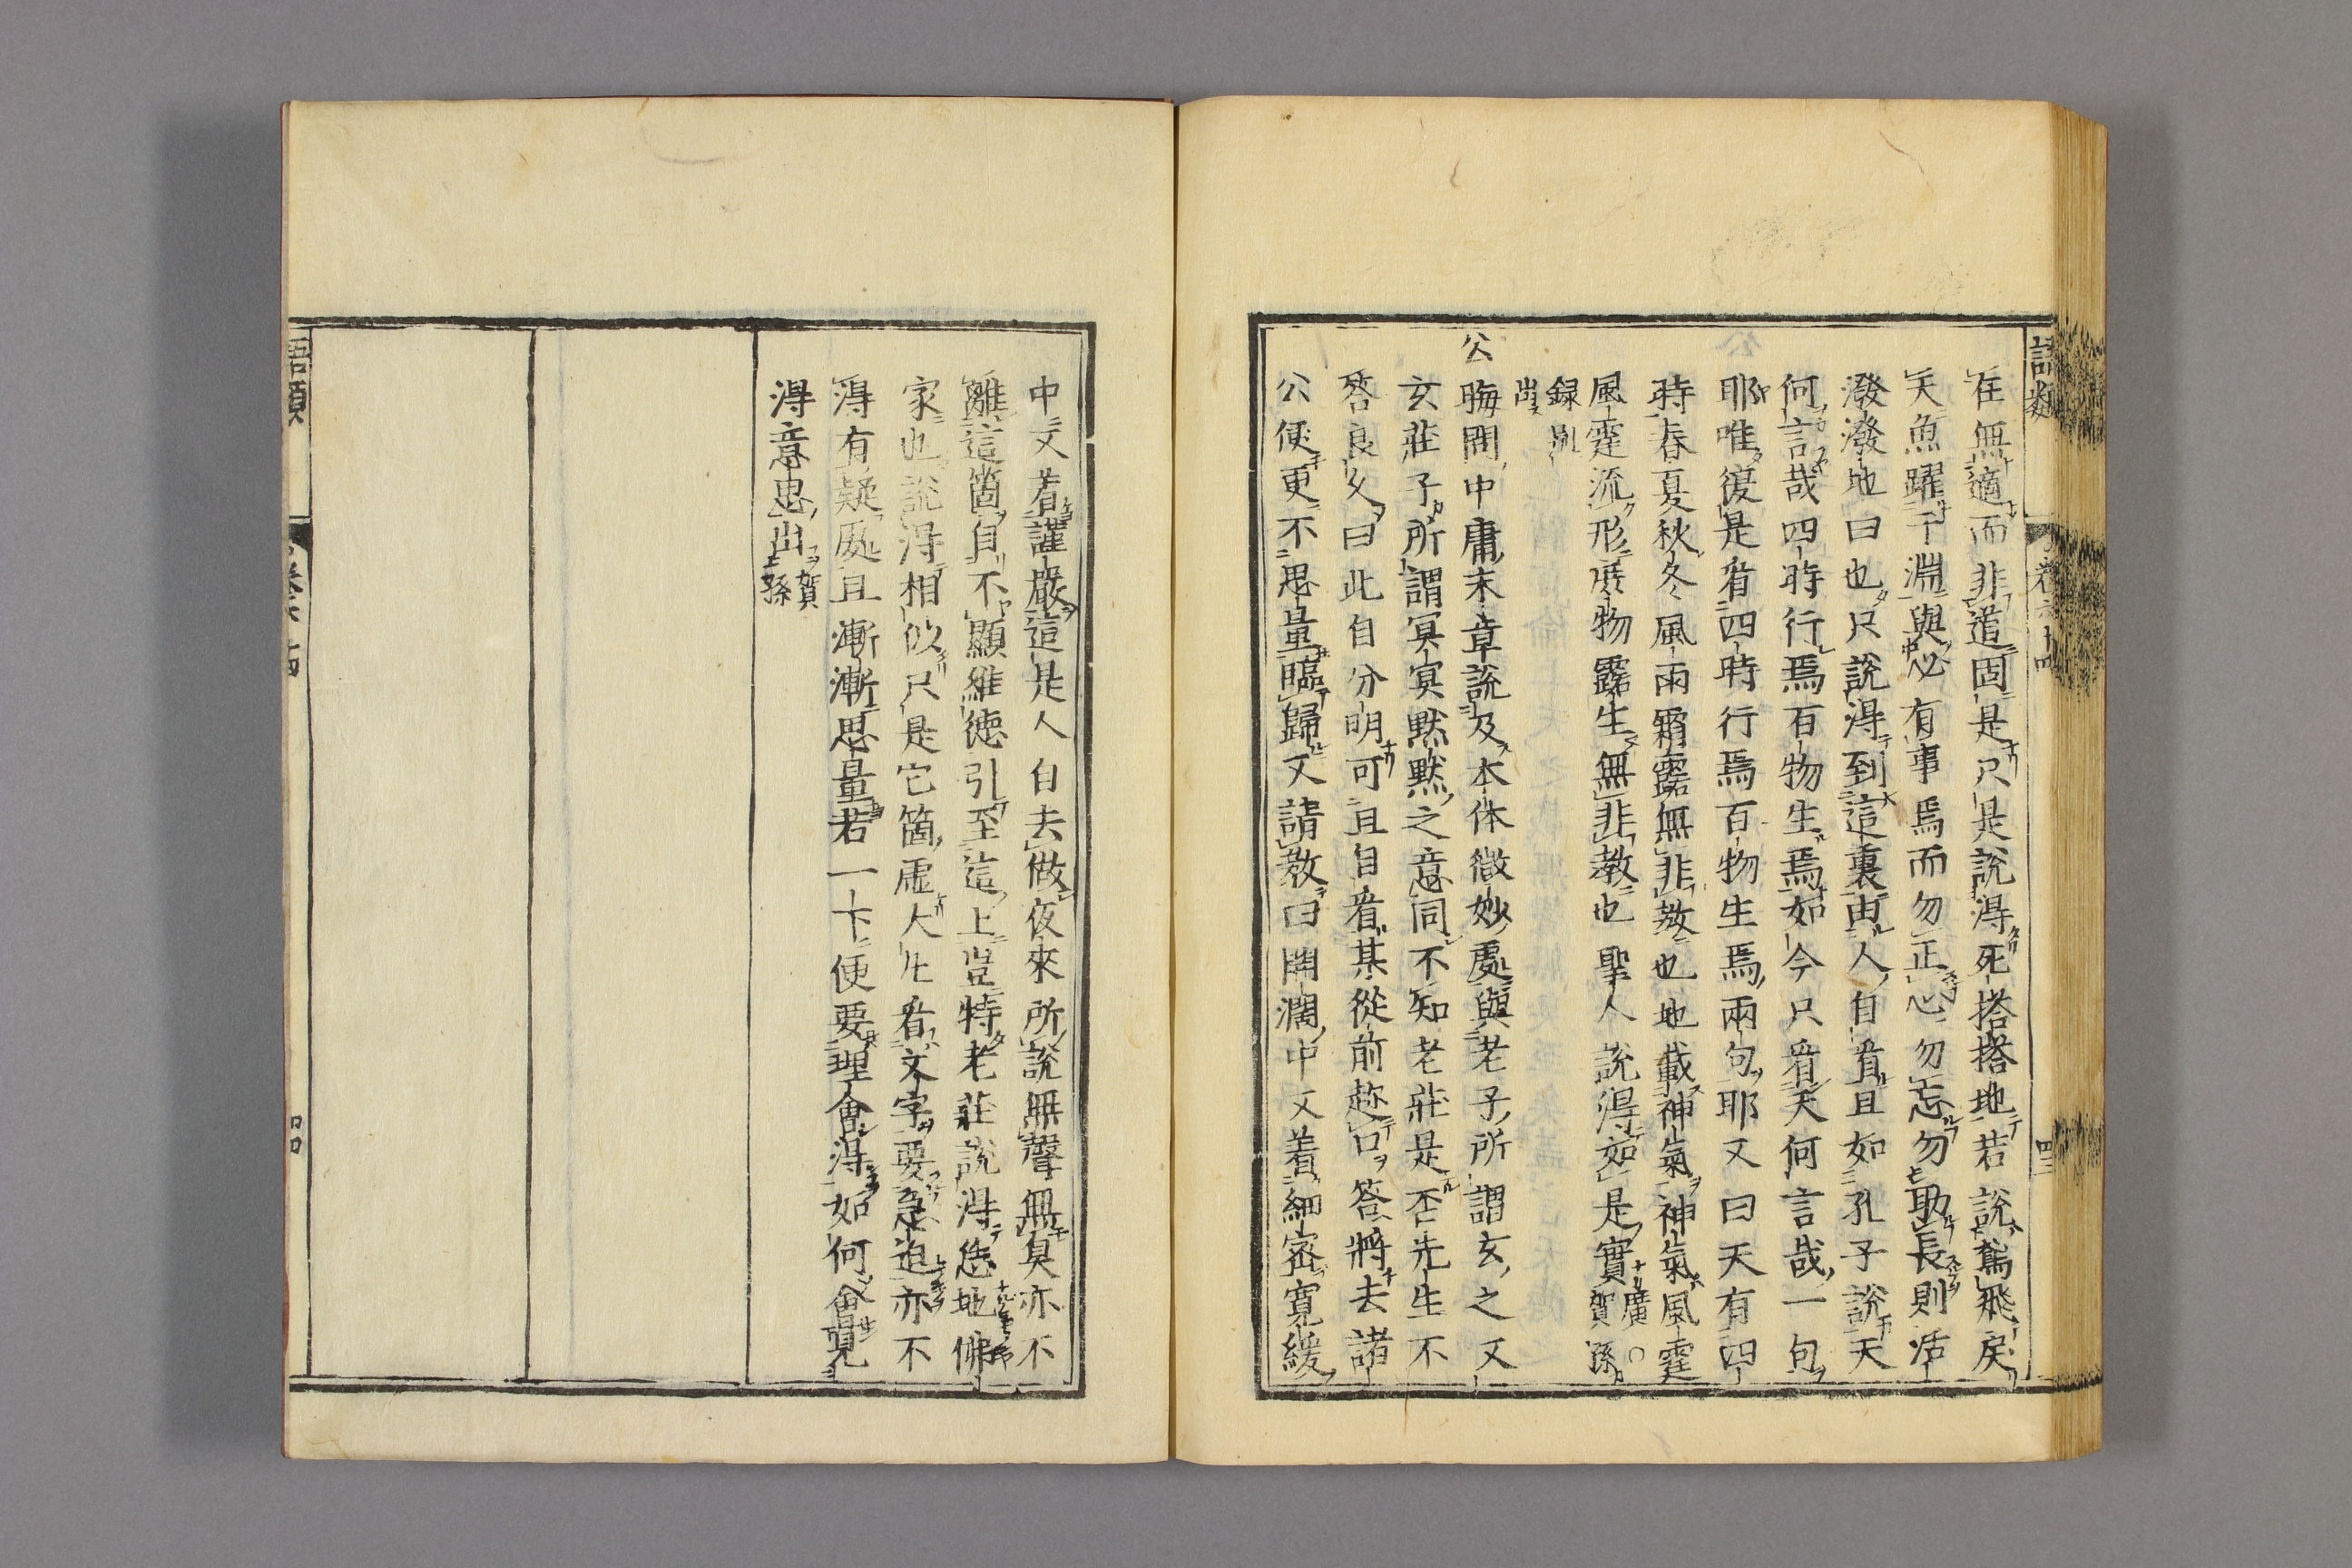 語類
卷六十四
四三
在無適而非道固是只是說得死搭搭地若說鳶飛戾
天魚躍于淵與必有事焉而勿正心勿忘勿助長則活
潑潑地曰也只說得到這裏由人自看且如孔子說天
何言哉四時行焉百物生焉如今只看天何言哉一句
耶唯復是看四時行焉百物生焉兩句耶又曰天有四
時春夏秋冬風雨霜露無非教也地載神氣神氣風霆
風霆流形庶物露生無非教也聖人說得如是實廣○賀孫
録別出
公晦問中庸末章說及本体微妙處與老子所謂玄之又
玄莊子所謂冥冥黙黙之意同不知老莊是否先生不
答良久曰此自分明可且自看某從前趂口答將去諸
公便更不思量臨歸又請教曰開濶中又着細密寛緩
中又着謹嚴這是人自去做夜來所說無聲無臭亦不
離這箇自不顯維德引至這上豈特老莊說得恁地佛
家也說得相似只是它箇虚大凡看文字要急迫亦不
得有疑處且漸漸思量若一下便要理會得如何會見
得意思出賀孫
語類
卷六十四
四四